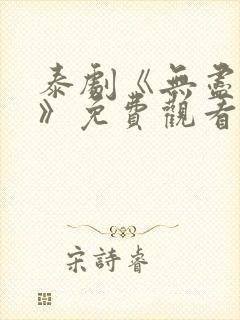 泰劇《無盡
》免費觀看
宋詩睿